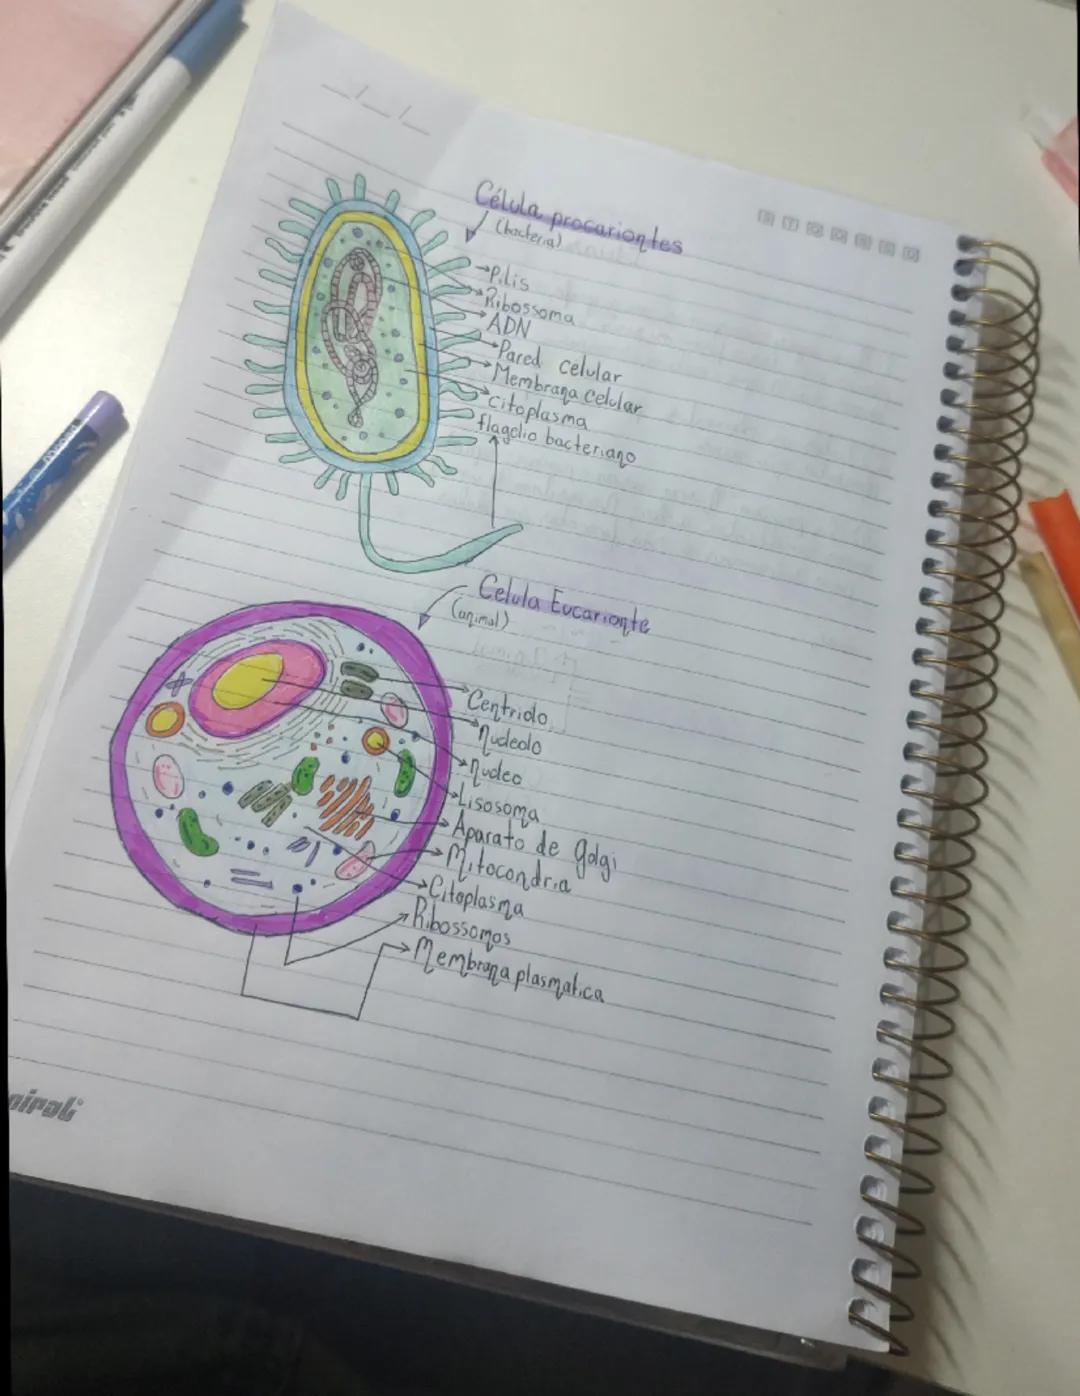 Célula procariontes
(bacteria)
Pilis
Ribossoma
ADN
Pared celular
Membrana celular
citoplasma
flagelio bacteriano
Celula Eucarionte
(animal)
Centriolo
nucleolo
nucleo
Lisosoma
Aparato de golgi
Mitocondria
Citoplasma
Ribossomos
Membrana plasmatica